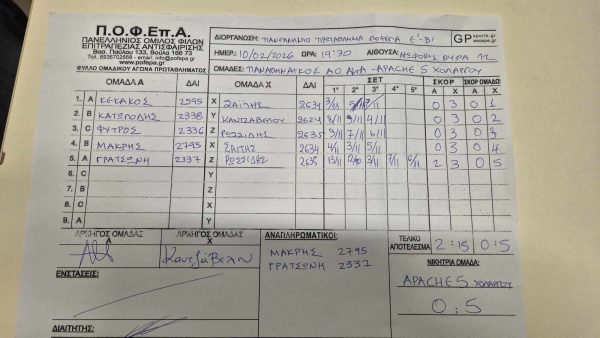 Π.Ο.Φ.Επ.Α.
ΠΑΝΕΛΛΗΝΙΟΣ ΟΜΙΛΟΣ ΦΙΛΩΝ
ΕΠΙΤΡΑΠΕΖΙΑΣ ΑΝΤΙΣΦΑΙΡΙΣΗΣ
Βασ. Παύλου 133, Βούλα 166 73
Τηλ. 6936702668 - email: info@pofepa.gr
www.pofepa.gr
ΦΥΛΛΟ ΟΜΑΔΙΚΟΥ ΑΓΩΝΑ ΠΡΩΤΑΘΛΗΜΑΤΟΣ
ΔΙΟΡΓΑΝΩΣΗ: ΠΑΝΕΛΛΗΝΙΟ ΠΡΩΤΑΘΛΗΜΑ ΠΟΦΕΠΑ
GP sports.gr
ΗΜΕΡ.: 10/02/2026 ΩΡΑ: 19:30 ΑΙΘΟΥΣΑ:
ΟΜΑΔΕΣ: ΠΑΝΑΘΗΝΑΙΚΟΣ ΑΟ ΑμΑ - APACHE 5 ΧΟΛΑΡΓΟΥ
ΟΜΑΔΑ Α ΔΑΙ ΟΜΑΔΑ Χ ΔΑΙ ΣΕΤ ΣΚΟΡ ΣΚΟΡ ΟΜΑΔΩΝ
1° 2° 3° 4° 5° Α Χ Α Χ
1. Α ΚΕΚΑΚΟΣ 2595 Χ ΣΑΙΤΗΣ 2634 3/11 0 3 0 1
2. Β ΚΑΤΩΠΟΔΗΣ 2338 Υ ΚΑΝΤΖΑΒΕΛΟΥ 2624 8/11 9/11 4/11 0 3 0 2
3. C ΦΥΤΡΟΣ 2336 Ζ ΡΩΣΣΙΔΗΣ 2635 9/11 7/11 6/11 0 3 0 3
4. Β ΜΑΚΡΗΣ 2795 Χ ΣΑΙΤΗΣ 2634 4/11 3/11 5/11 0 3 0 4
5. Α ΓΡΑΤΣΩΝΗ 2337 Ζ ΡΩΣΣΙΔΗΣ 2635 13/11 12/10 3/11 7/11 6/11 2 3 0 5
6. C Υ
7. Β Ζ
8. C Χ
9. Α Υ
ΑΡΧΗΓΟΣ ΟΜΑΔΑΣ Α
ΑΡΧΗΓΟΣ ΟΜΑΔΑΣ Χ
Καντζάβελου
ΑΝΑΠΛΗΡΩΜΑΤΙΚΟΙ:
ΜΑΚΡΗΣ 2795
ΓΡΑΤΣΩΝΗ 2337
ΤΕΛΙΚΟ ΑΠΟΤΕΛΕΣΜΑ 2:15 0:5
ΝΙΚΗΤΡΙΑ ΟΜΑΔΑ:
APACHE 5 ΧΟΛΑΡΓΟΥ
0:5
ΕΝΣΤΑΣΕΙΣ:
ΔΙΑΙΤΗΤΗΣ: